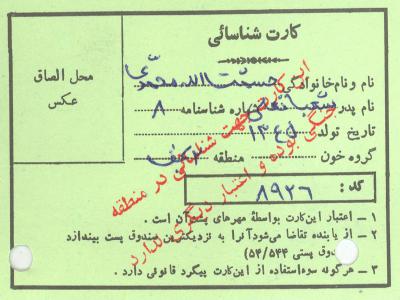 کارت شناسائی
محل الصاق
عکس
نام و نام خانوادگی حشمت الله محمدی
نام پدر شعبانعلی شماره شناسنامه ۸
تاریخ تولد ۱۳۴۵
گروه خون منطقه
این کارت جهت شناسائی در منطقه
جنگی بوده و اعتبار دیگری ندارد
کد: ۸۹۲۶
۱ ـ اعتبار این کارت بواسطهٔ مهرهای پشت آن است .
۲ ـ از یابنده تقاضا می‌شود آنرا به نزدیکترین صندوق پست بیندازد
صندوق پستی (۵۴/۵۴۴)
۳ ـ هرگونه سوءاستفاده از این کارت پیگرد قانونی دارد .